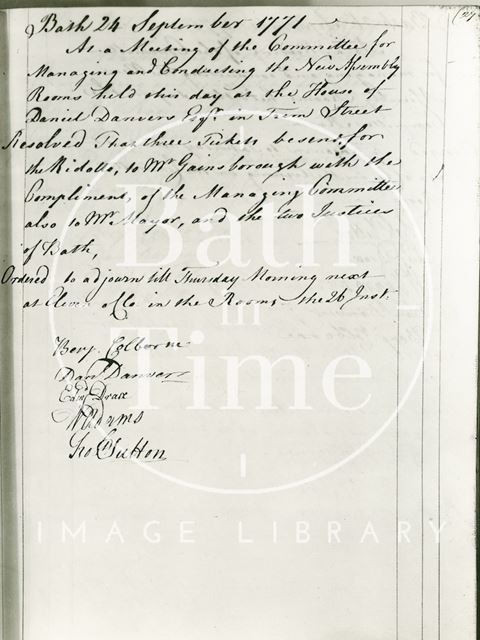 (27
Bath 24 September 1771
At a Meeting of the Committee for
Managing and Conducting the New Assembly
Rooms held this day at the House of
Daniel Danvers Esqr. in Trim Street
Resolved That three Tickets be sent for
the Ridotto, to Mr Gainsborough with the
Compliments, of the Managing Committee
also to Mr Mayor, and the two Justices
of Bath,
Ordered to adjourn till Thursday Morning next
at Eleven o Clo in the Rooms the 26 Inst.
Benj. Colborne
Danl Danvers
Edmd Drax
W Adams
Jno Sutton
Bath
in
Time
IMAGE LIBRARY